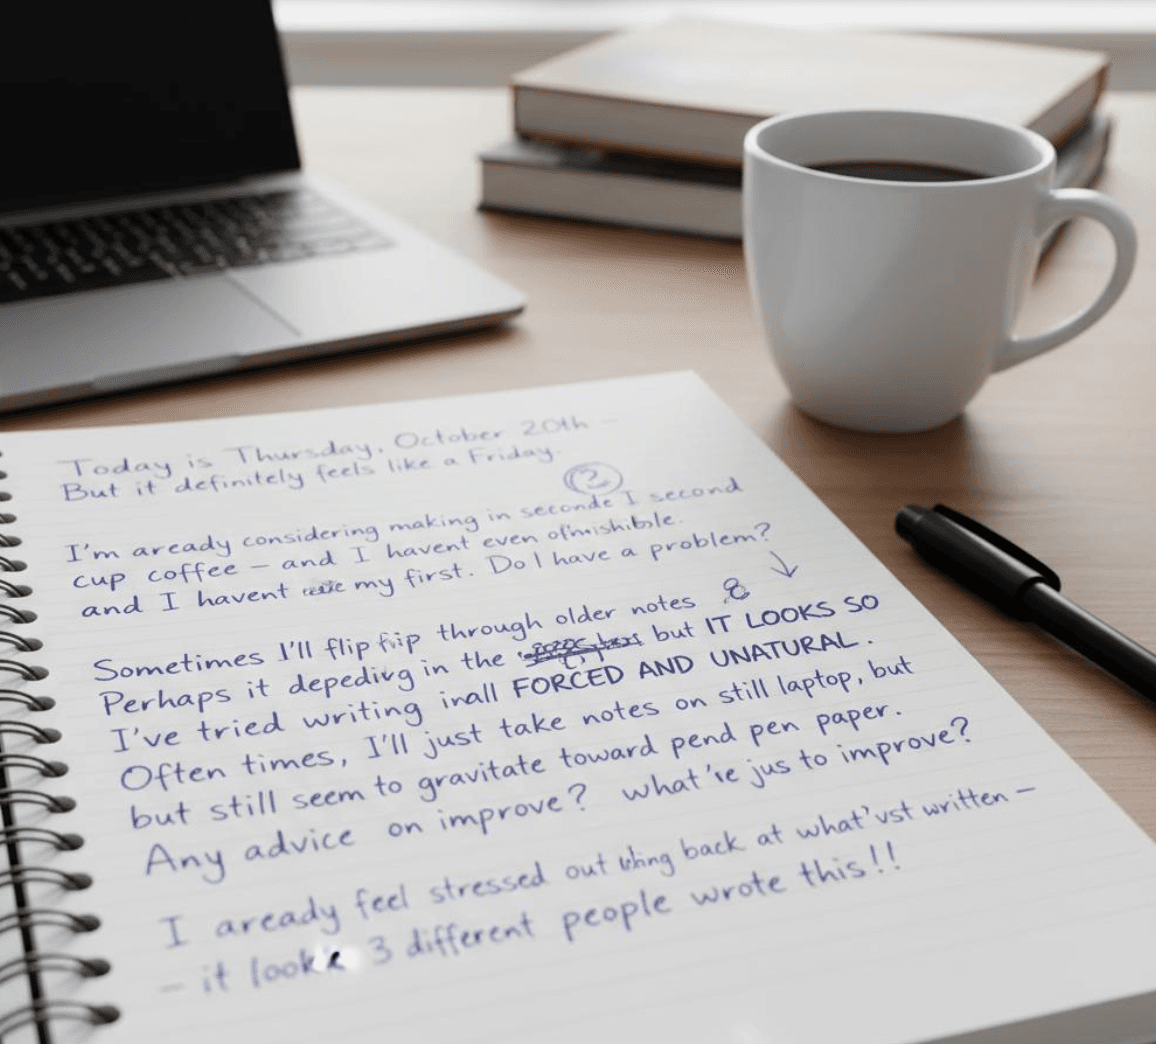 Today is Thursday, October 20th –
But it definitely feels like a Friday.
?
I'm aready considering making in seconde I second
cup coffee – and I havent even
and I havent my first. Do I have a problem?
Sometimes I'll flip through older notes &
Perhaps it depedivg in the but IT LOOKS SO
I've tried writing inall FORCED AND UNATURAL.
Often times, I'll just take notes on still laptop, but
but still seem to gravitate toward pend pen paper.
Any advice on improve? what're jus to improve?
I aready feel stressed out back at what'vst written –
– it look 3 different people wrote this!!